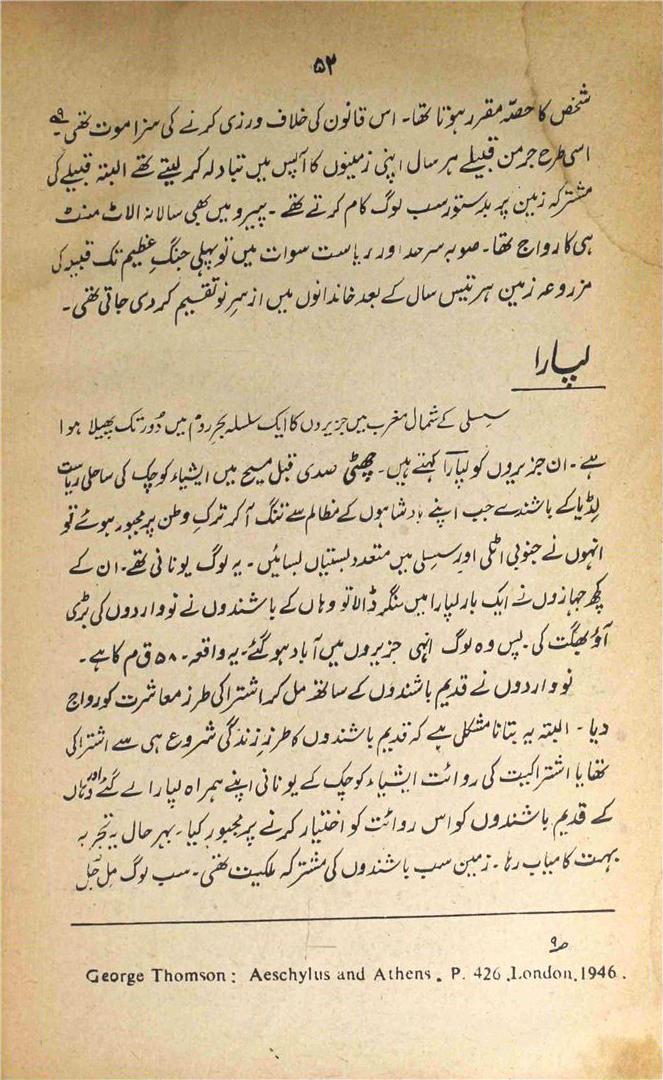 ۵۳
شخص کا حصّہ مقرر ہوتا تھا۔ اس قانون کی خلاف ورزی کرنے کی سزا موت تھی۔ ۹
اسی طرح جرمن قبیلے ہر سال اپنی زمینوں کا آپس میں تبادلہ کر لیتے تھے البتہ قبیلے کی
مشترکہ زمین پر بدستور سب لوگ کام کرتے تھے۔ پیرو میں بھی سالانہ الاٹ منٹ
ہی کا رواج تھا۔ صوبہ سرحد اور ریاست سوات میں تو پہلی جنگِ عظیم تک قبیلہ کی
مزروعہ زمین ہر تیس سال کے بعد خاندانوں میں ازسرِ نو تقسیم کر دی جاتی تھی۔
لپارا
سسلی کے شمال مغرب میں جزیروں کا ایک سلسلہ بحرِ روم میں دُور تک پھیلا ہوا
ہے۔ ان جزیروں کو لپارا کہتے ہیں۔ چھٹی صدی قبل مسیح میں ایشیاء کوچک کی ساحلی ریاست
لڈیا کے باشندے جب اپنے بادشاہوں کے مظالم سے تنگ آ کر ترکِ وطن پر مجبور ہوئے تو
انہوں نے جنوبی اٹلی اور سسلی میں متعدد بستیاں بسائیں۔ یہ لوگ یونانی تھے۔ ان کے
کچھ جہازوں نے ایک بار لپارا میں لنگر ڈالا تو وہاں کے باشندوں نے نوواردوں کی بڑی
آؤ بھگت کی۔ پس وہ لوگ انہی جزیروں میں آباد ہو گئے۔ یہ واقعہ ۵۸۰ ق م کا ہے۔
نوواردوں نے قدیم باشندوں کے ساتھ مل کر اشتراکی طرز معاشرت کو رواج
دیا۔ البتہ یہ بتانا مشکل ہے کہ قدیم باشندوں کا طرزِ زندگی شروع ہی سے اشتراکی
تھا یا اشتراکیت کی روائت ایشیاء کوچک کے یونانی اپنے ہمراہ لپارا لے گئے اور وہاں
کے قدیم باشندوں کو اس روائت کو اختیار کرنے پر مجبور کیا۔ بہرحال یہ تجربہ
بہت کامیاب رہا۔ زمین سب باشندوں کی مشترکہ ملکیت تھی۔ سب لوگ مل جل
۹
George Thomson: Aeschylus and Athens. P. 426 .London.1946.